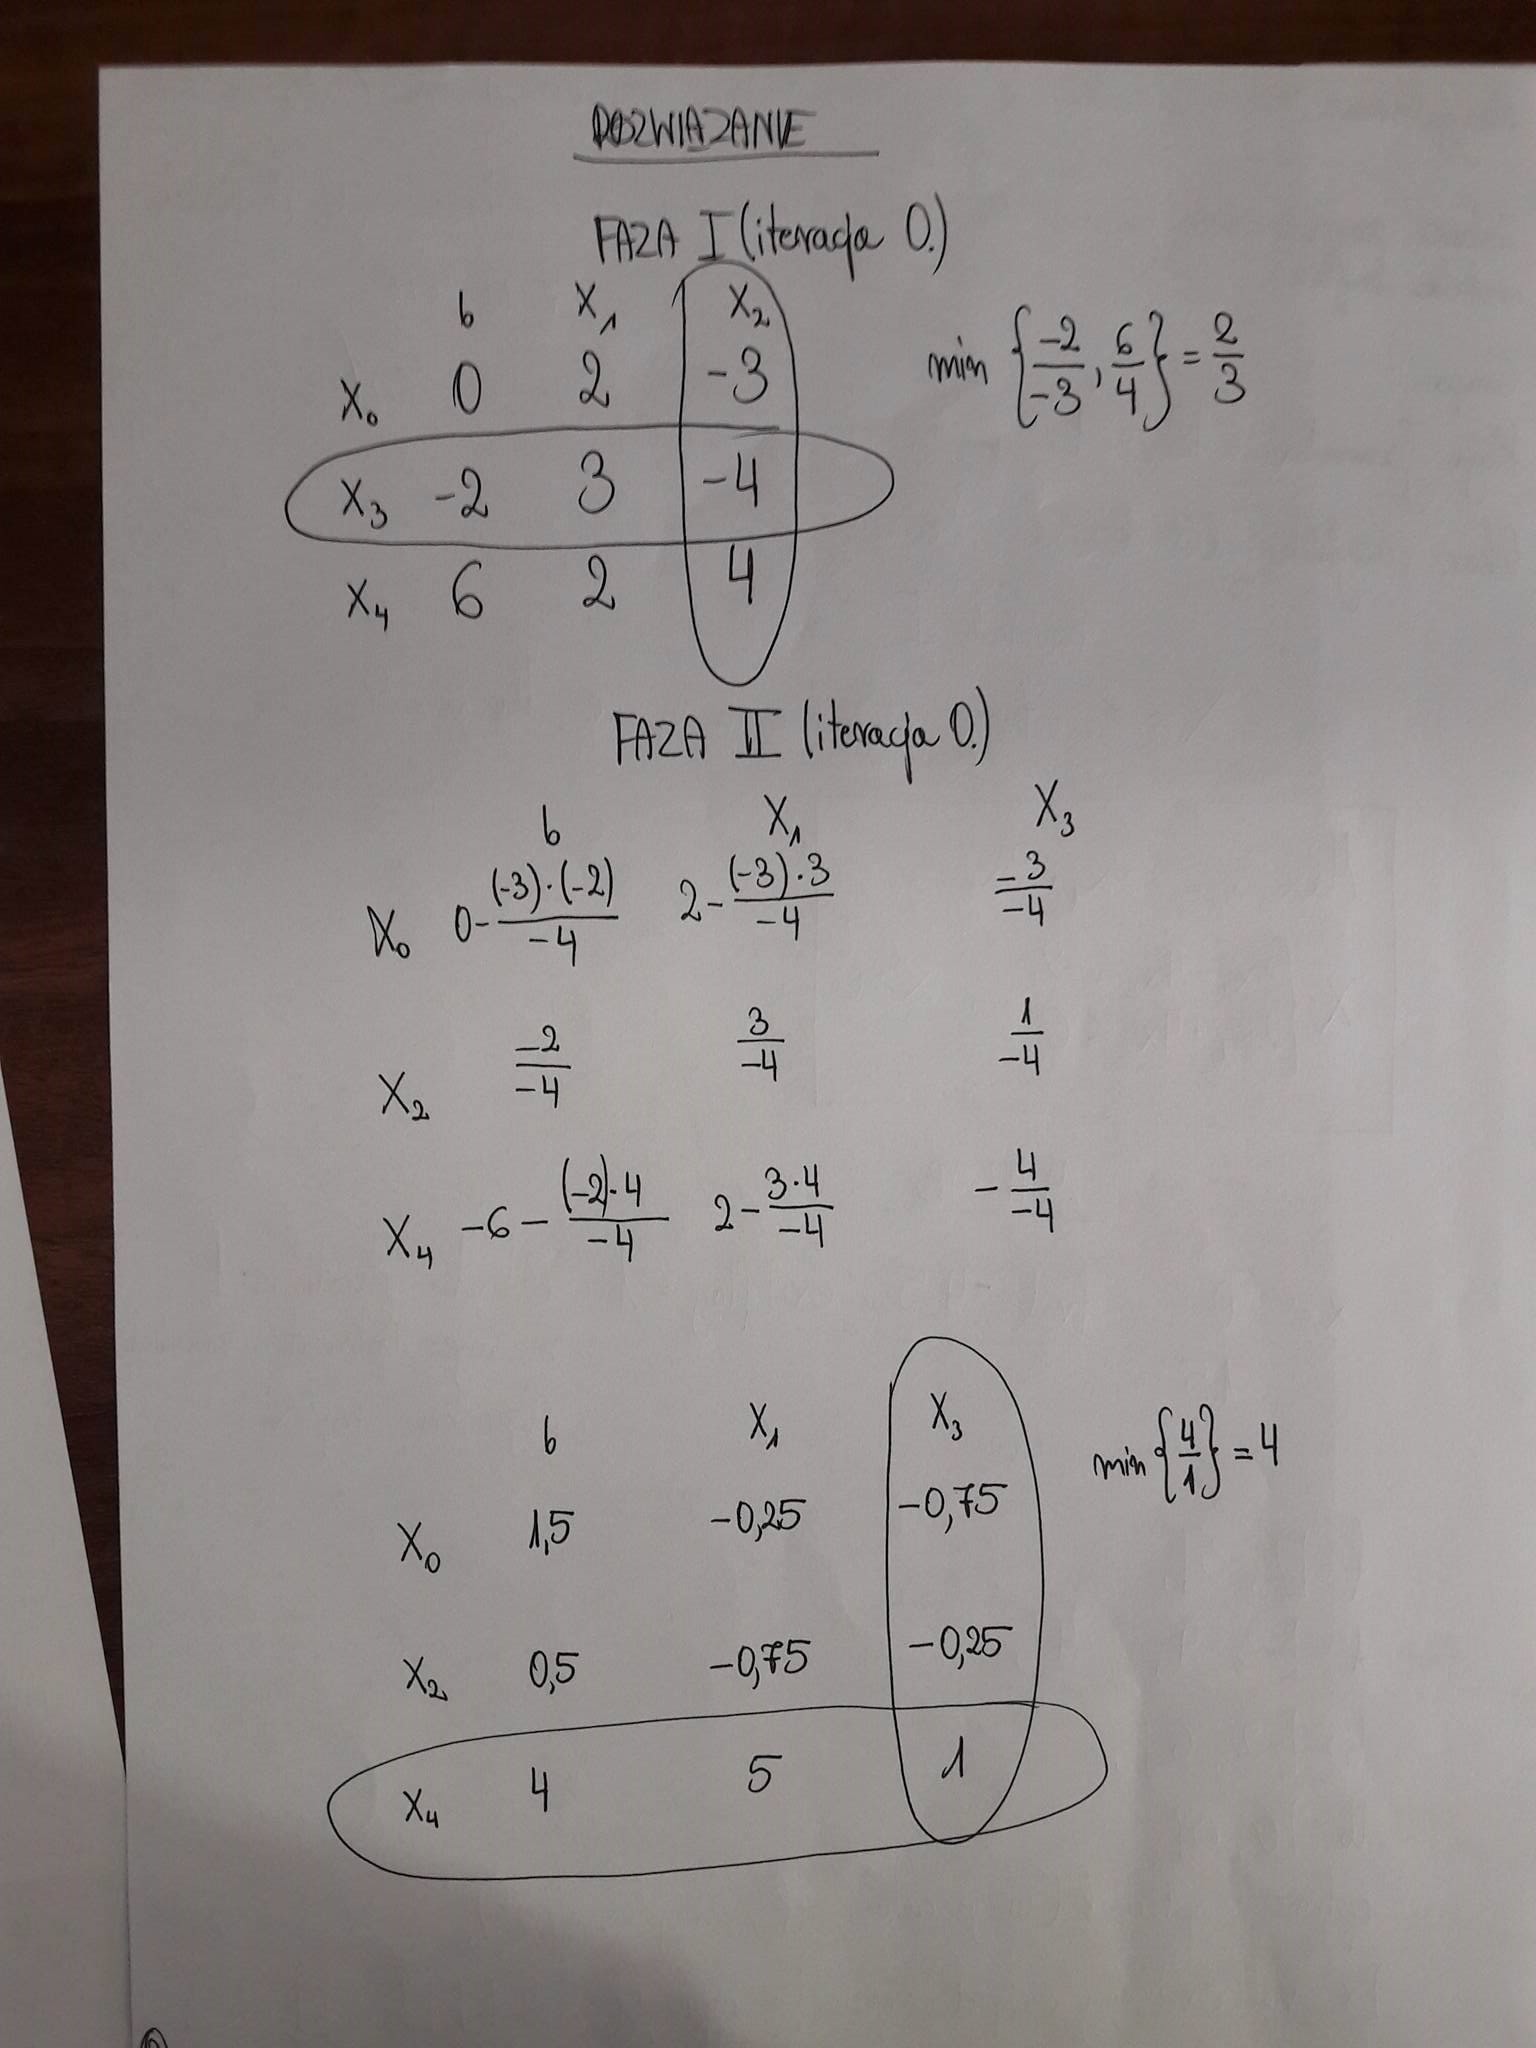 ROZWIĄZANIE
FAZA I (iteracja 0.)
b x₁ x₂
x₀ 0 2 -3
x₃ -2 3 -4
x₄ 6 2 4
min {-2/-3, 6/4} = 2/3
FAZA II (iteracja 0.)
b x₁ x₃
x₀ 0-(-3)·(-2)/-4 2-(-3)·3/-4 -3/-4
x₂ -2/-4 3/-4 1/-4
x₄ -6-(-2)·4/-4 2-3·4/-4 -4/-4
b x₁ x₃
x₀ 1,5 -0,25 -0,75
x₂ 0,5 -0,75 -0,25
x₄ 4 5 1
min {4/1} = 4